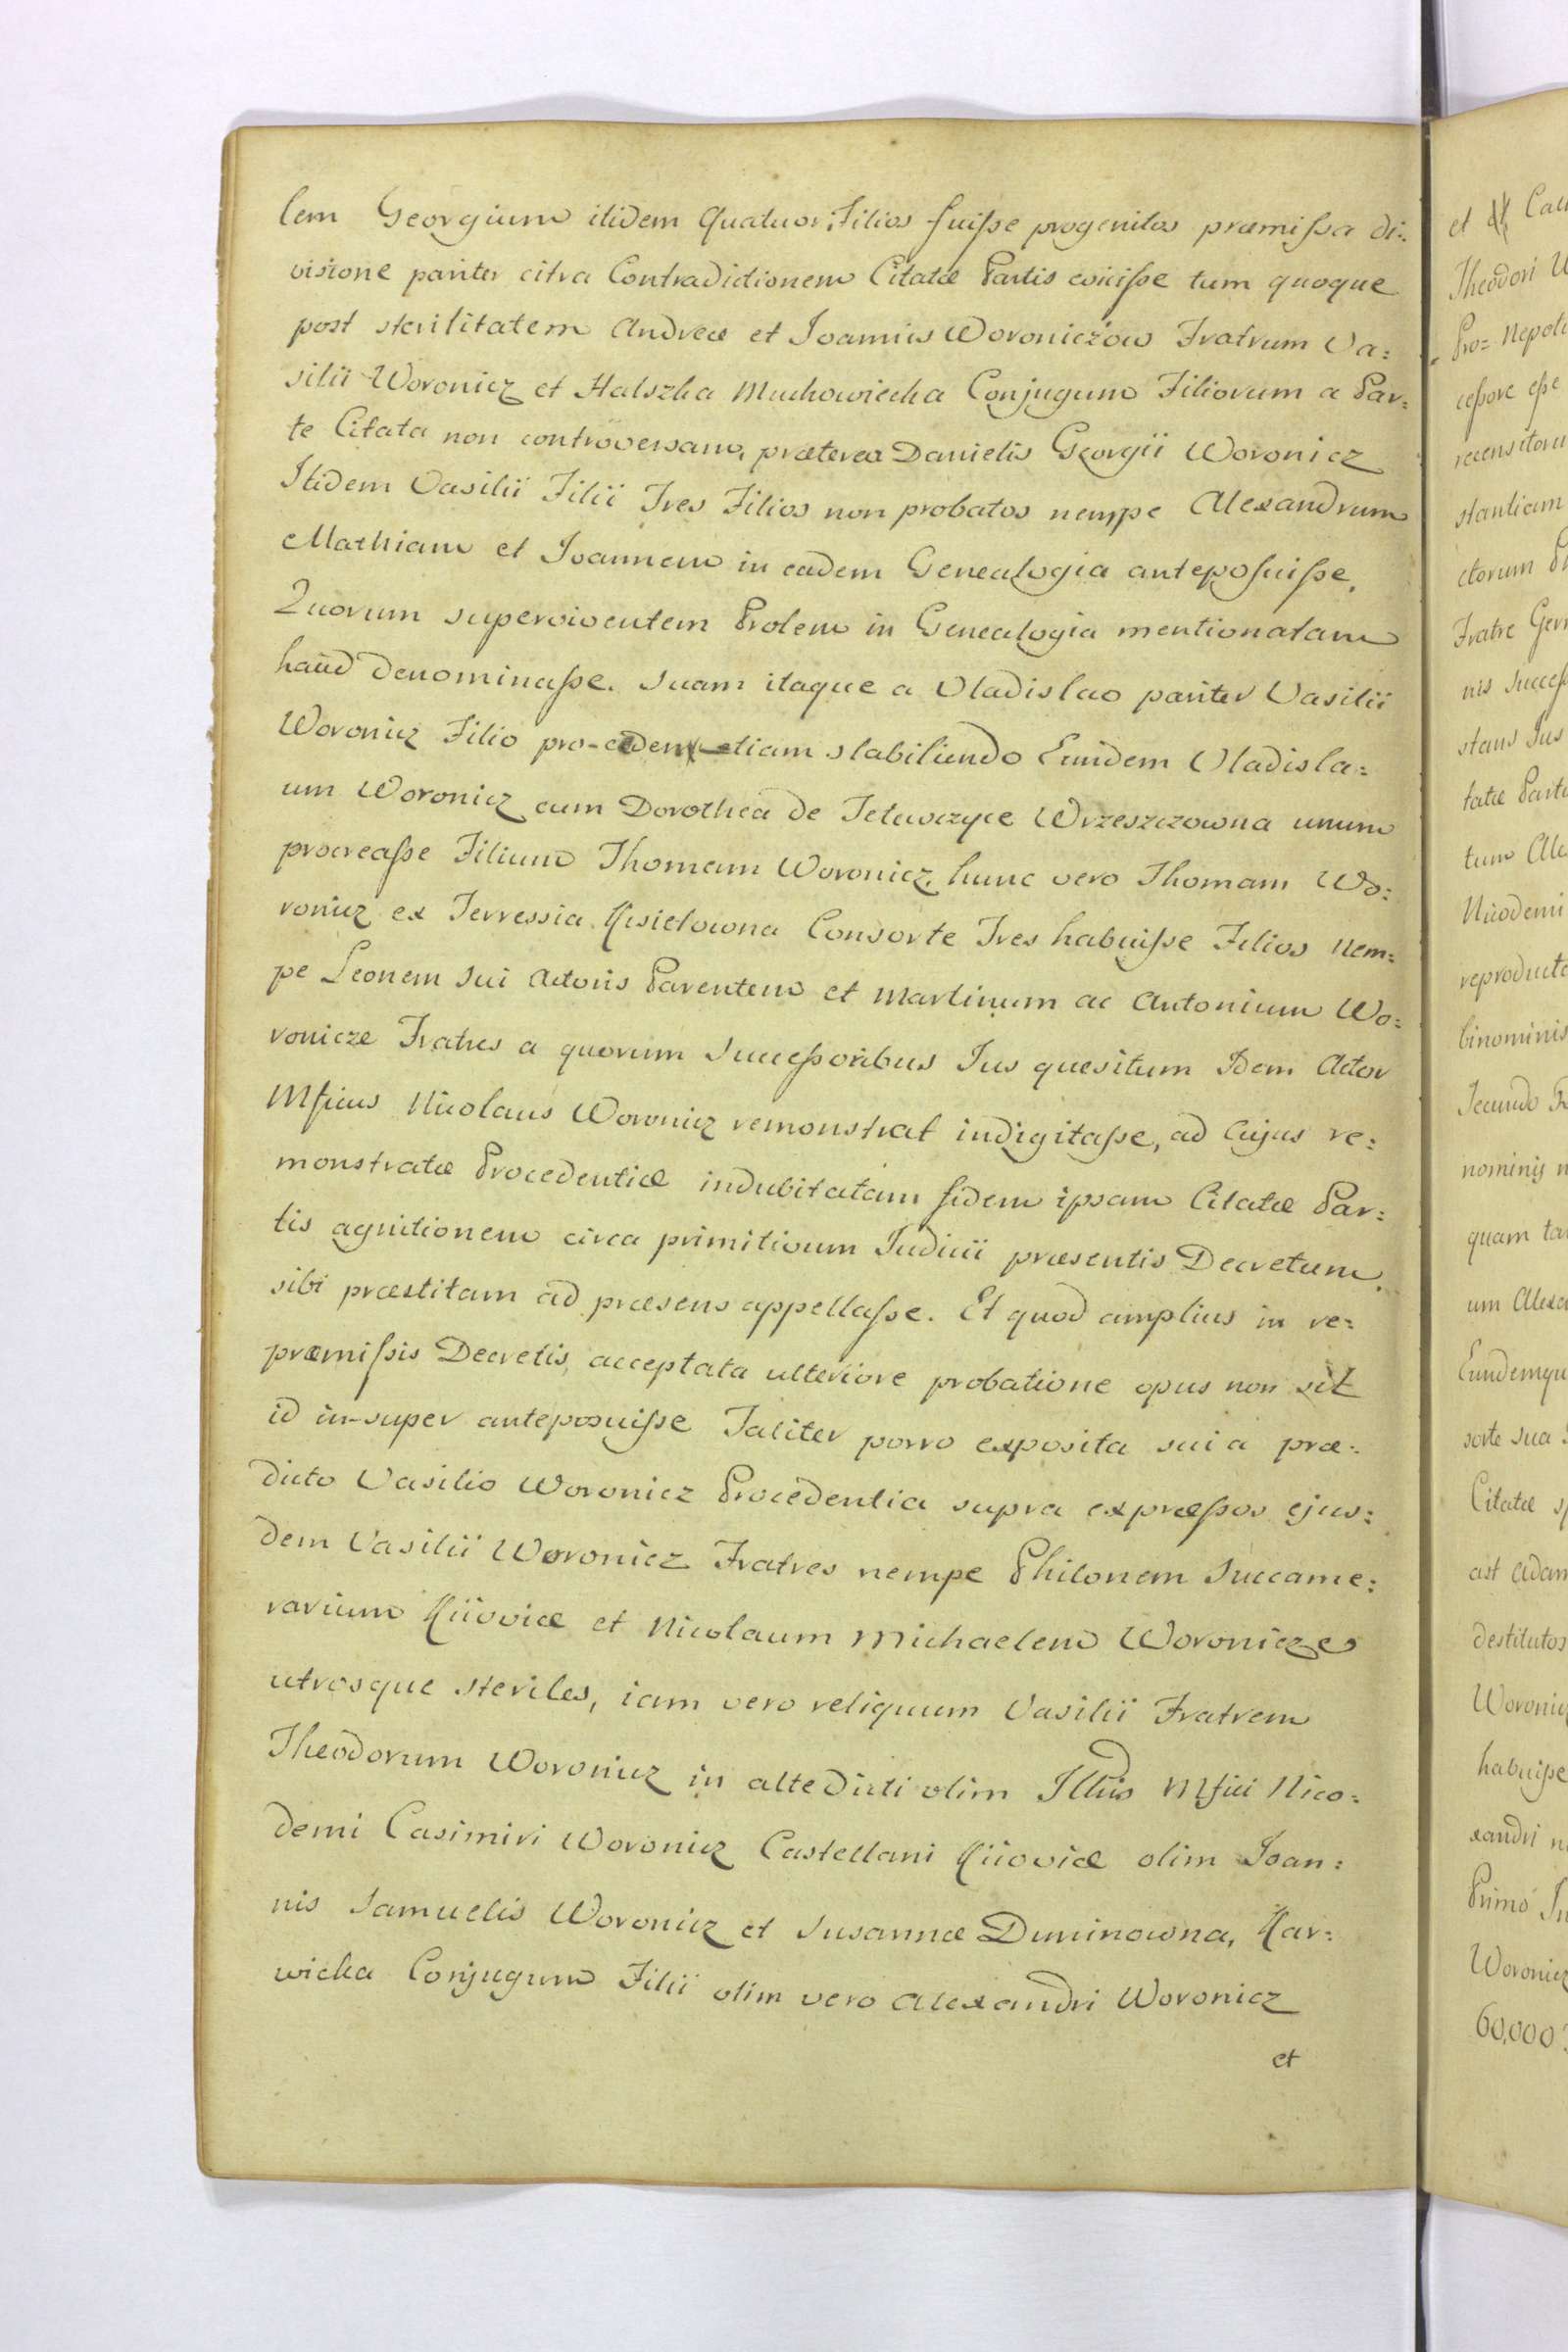 lem Georgium itidem Quatuor Filios fuisse progenitos præmissa di=
visione pariter citra Contradictionem Citatæ Partis evicisse tum quoque
post sterilitatem Andreæ et Joannis Woroniczow Fratrum Va=
silii Woronicz et Halszka Muchowiecka Conjugum Filiorum a Par=
te Citata non controversam, præterea Danielis Georgii Woronicz
Itidem Vasilii Filii Tres Filios non probatos nempe Alexandrum
Mathiam et Joannem in eadem Genealogia anteposuisse.
Quorum superviventem Prolem in Genealogia mentionatam
haud denominasse. Suam itaque a Vladislao pariter Vasilii
Woronicz Filio pro-cedentiam stabiliendo Eundem Vladisla=
um Woronicz cum Dorothea de Wrzeszczowna unum
procreasse Filium Thomam Woronicz, hunc vero Thomam Wo=
ronicz ex Terressia Kisielowna Consorte Tres habuisse Filios Nem=
pe Leonem sui Actoris Parentem et Martinum ac Antonium Wo=
ronicze Fratres a quorum Successoribus Jus quesitum Idem Actor
Mficus Nicolaus Woronicz remonstrat indigitasse, ad Cujus re=
monstratæ Procedentiæ indubitatam fidem ipsam Citatæ Par=
tis agnitionem circa primitivum Judicii præsentis Decretum
sibi præstitam ad præsens appellasse. Et quod amplius in re=
præmissis Decretis acceptata ulteriore probatione opus non sit
id in-super anteposuisse Taliter porro exposita sui a præ=
dicto Vasilio Woronicz Procedentia supra expræssos ejus=
dem Vasilii Woronicz Fratres nempe Philonem Succame=
rarium Kiioviæ et Nicolaum Michaelem Woronicze
utrosque steriles, iam vero reliquum Vasilii Fratrem
Theodorum Woronicz in altedicti olim Illmis Mfici Nico=
demi Casimiri Woronicz Castellani Kiioviæ olim Joan=
nis Samuelis Woronicz et Susannæ Duninowna, Kar=
wicka Conjugum Filii olim vero Alexandri Woronicz
et
et
Theodori
Pro= Nepot
cessore esse
recensitoru
stantiam
ctorum
Fratre Ger
nis Success
stans Jus
tatæ Parti
tum Ale
Nicodemi
reproducto
binominis
Secundo
nominis
quam
um Alexa
Eundemqu
sorte sua
Citatæ
ast Adam
destitutos
Woronicz
habuisse
xandri
Primo
Woronicz
60,000